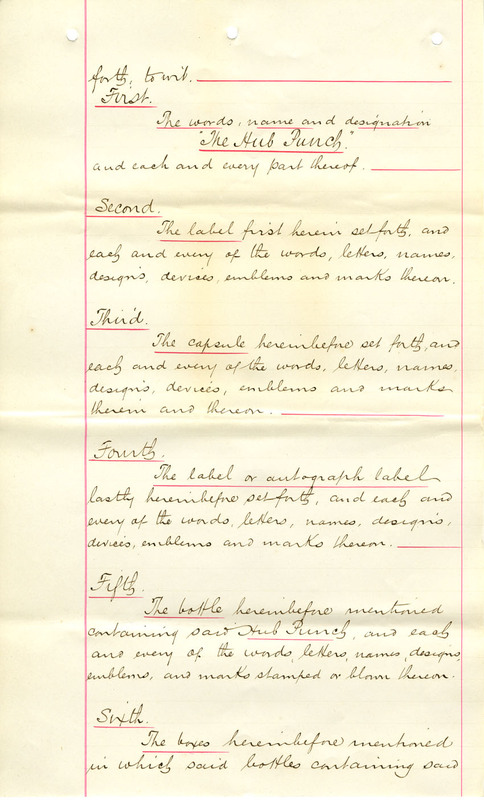 forth, to wit.
First.
The words, name and designation
"The Hub Punch."
and each and every part thereof.
Second.
The label first herein set forth, and
each and every of the words, letters, names,
designs, devices, emblems and marks thereon.
Third.
The capsule hereinbefore set forth, and
each and every of the words, letters, names,
designs, devices, emblems and marks
therein and thereon.
Fourth.
The label or autograph label
lastly hereinbefore set forth, and each and
every of the words, letters, names, designs,
devices, emblems and marks thereon.
Fifth.
The bottle hereinbefore mentioned
containing said Hub Punch, and each
and every of the words, letters, names, designs,
emblems, and marks stamped or blown thereon.
Sixth.
The boxes hereinbefore mentioned
in which said bottles containing said